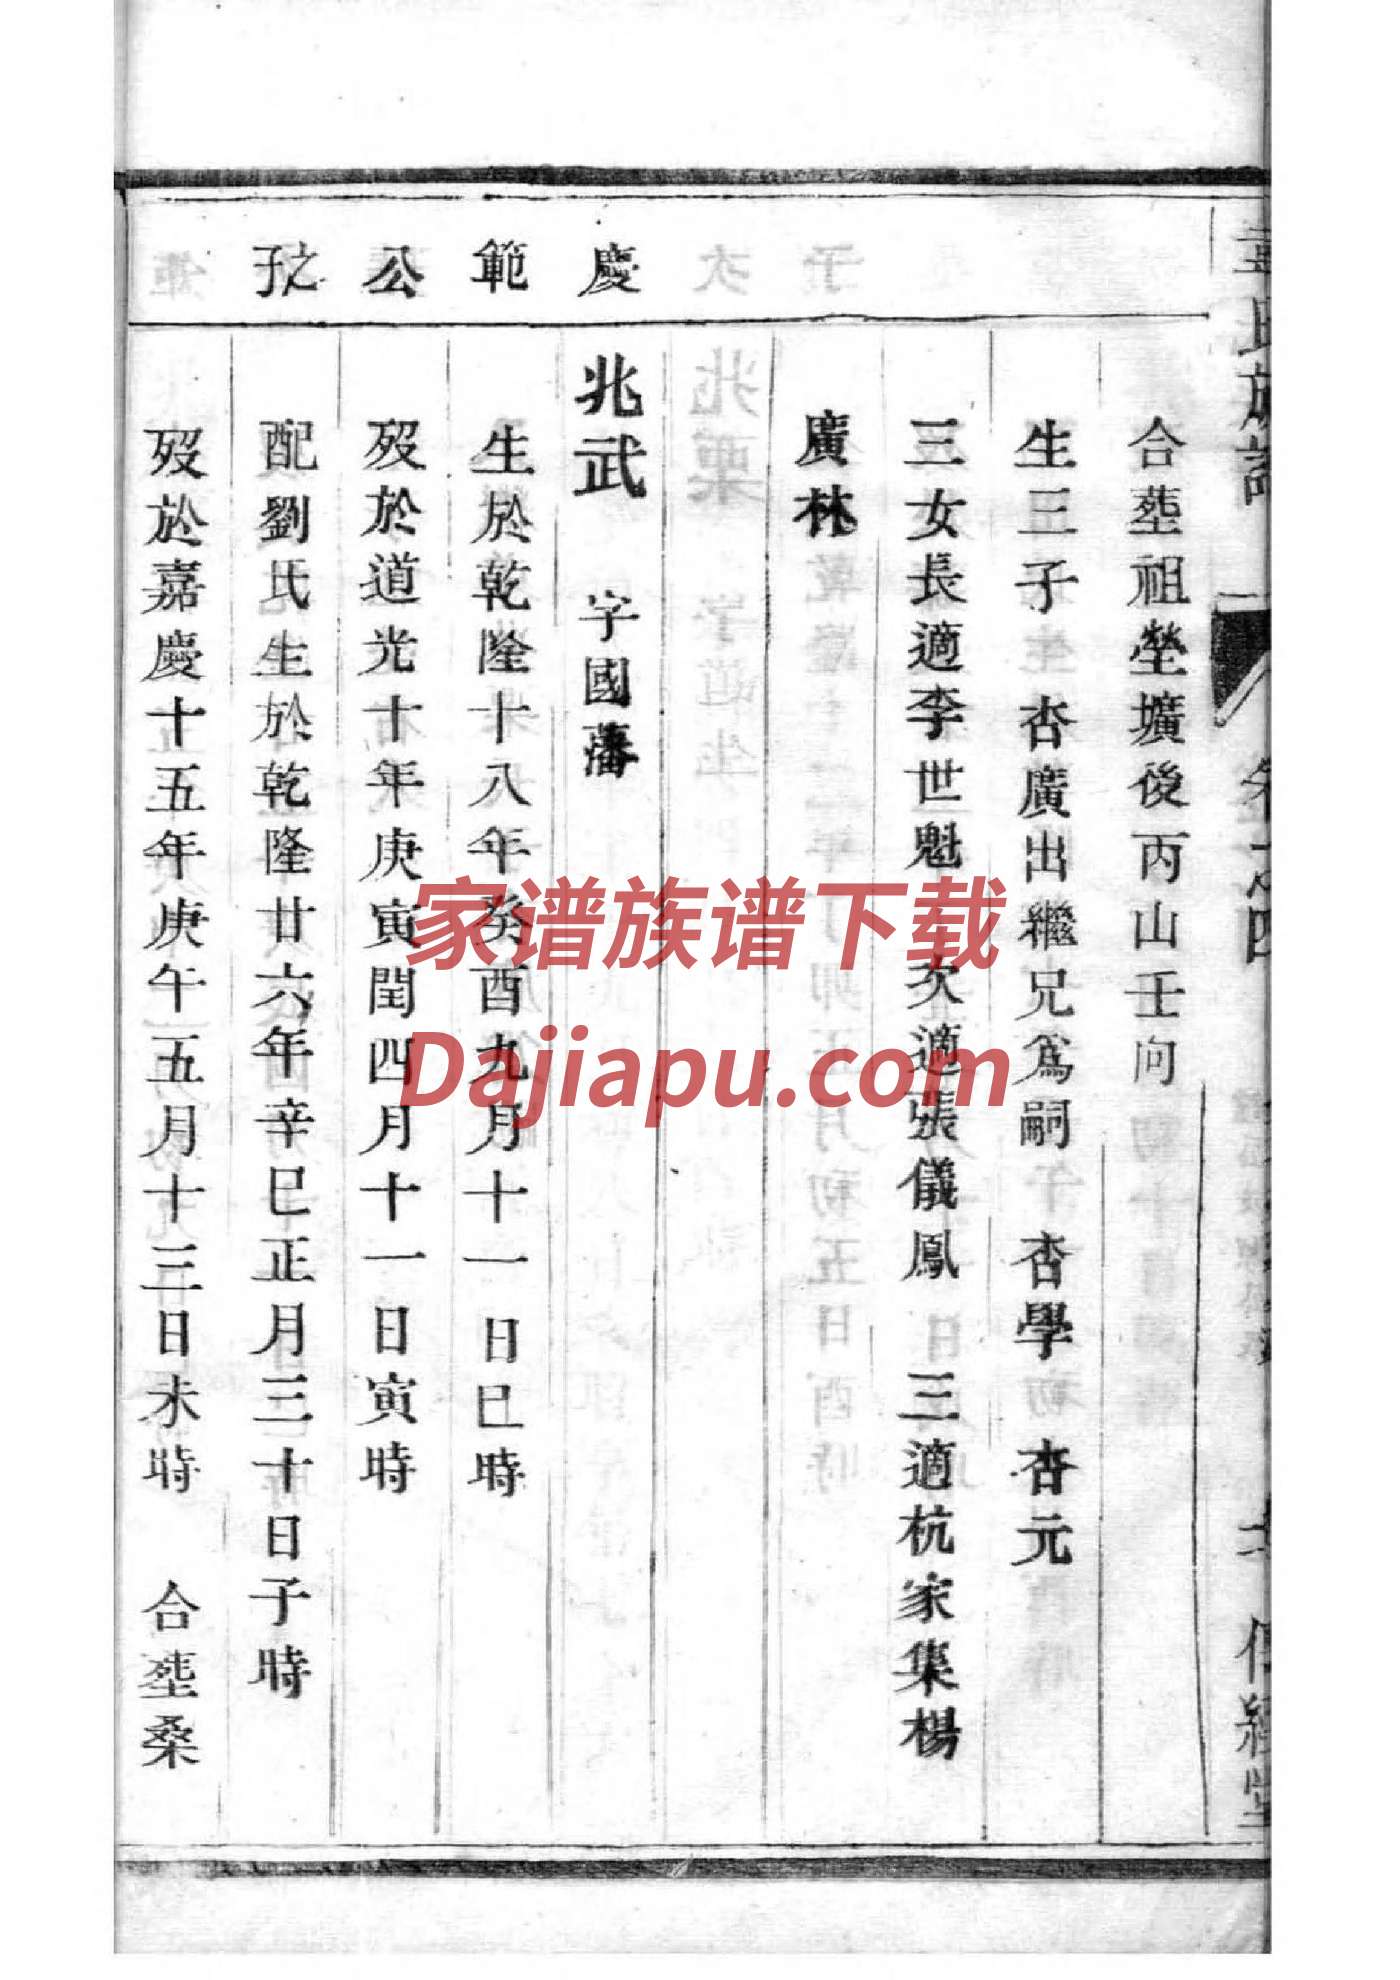 合塟祖塋壙後丙山壬向
生三子 杏廣出繼兄爲嗣 杏學 杏元
三女長適李世魁 次適張儀鳳 三適杭家集楊
廣林
慶
兆武 字國藩
範
生於乾隆十八年癸酉九月十一日巳時
公
歿於道光十年庚寅閏四月十一日寅時
之子
配劉氏生於乾隆廿六年辛巳正月三十日子時
歿於嘉慶十五年庚午五月十三日未時 合塟桑
家谱族谱下载
Dajiapu.com